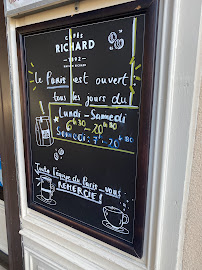 CAFÉS
RICHARD
1892
MAISON RICHARD
Le Paris est ouvert
tous les jours du
Lundi - Samedi
6h30 - 20h30
Samedi : 7h - 20h
Toute l'équipe du Paris vous
REMERCIE !